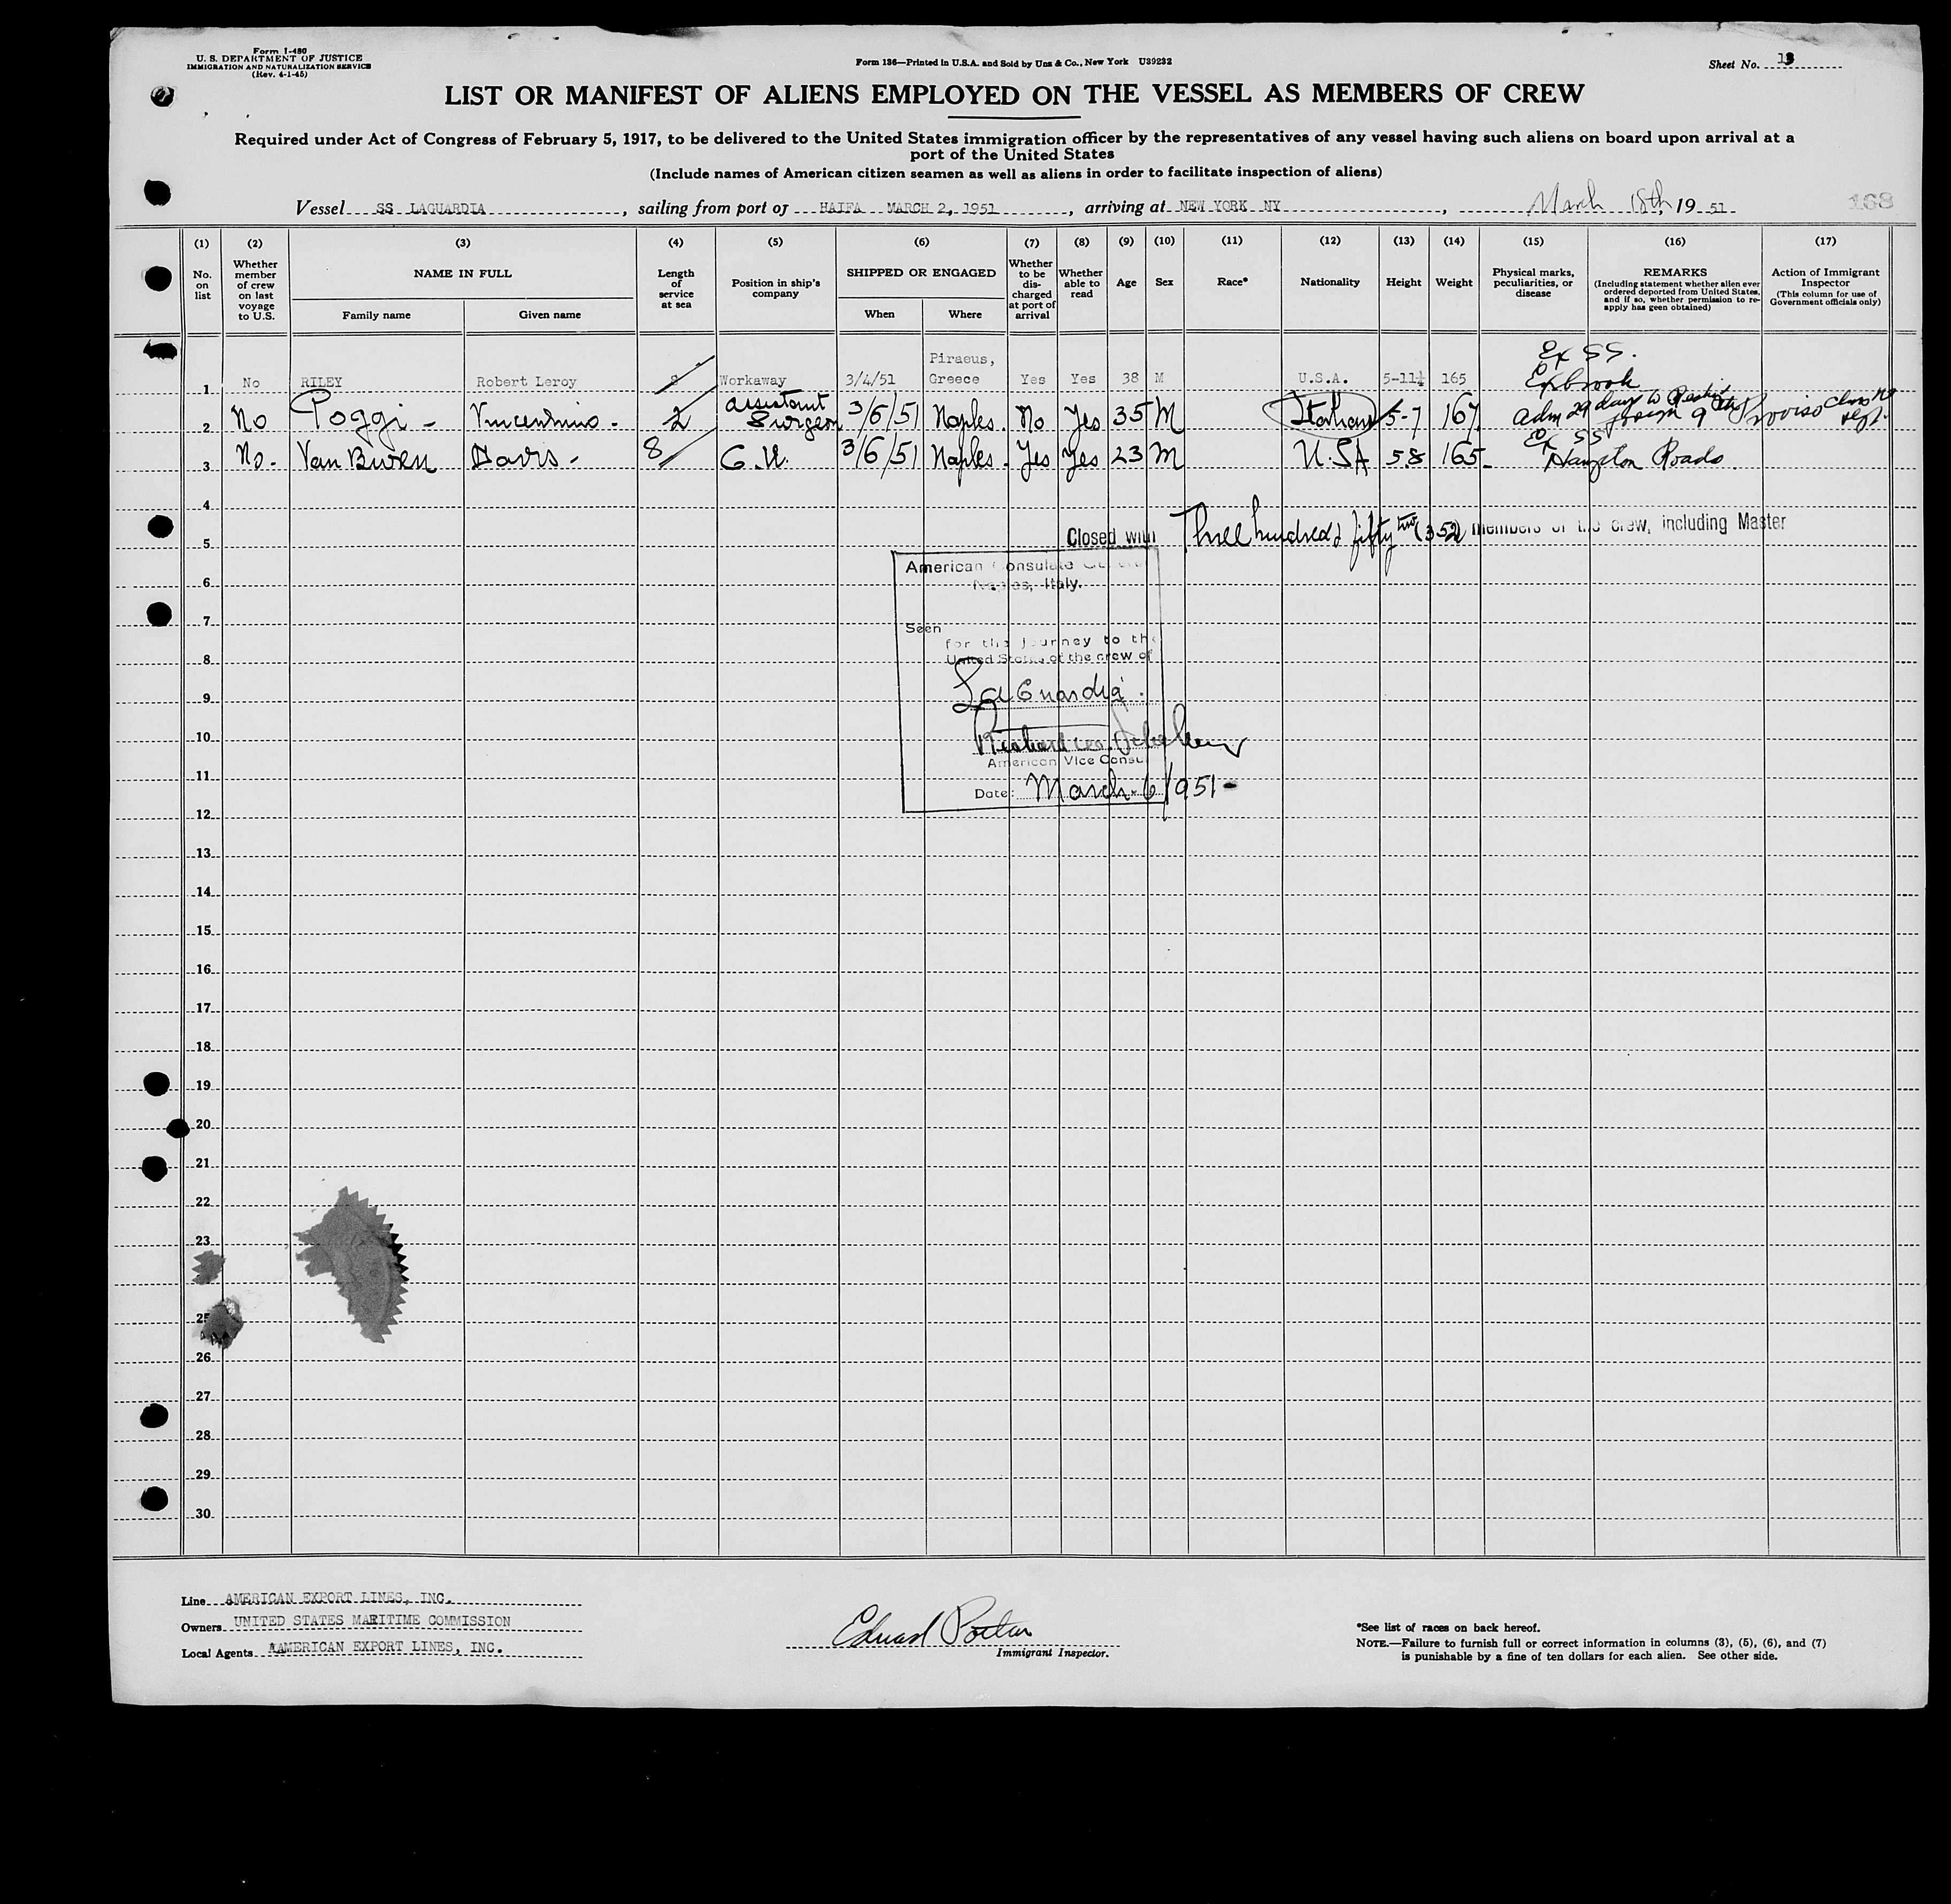 Form I-480
U. S. DEPARTMENT OF JUSTICE
IMMIGRATION AND NATURALIZATION SERVICE
(Rev. 4-1-45)
Form 136—Printed in U.S.A. and Sold by Unz & Co., New York U39232
Sheet No. 13
LIST OR MANIFEST OF ALIENS EMPLOYED ON THE VESSEL AS MEMBERS OF CREW
Required under Act of Congress of February 5, 1917, to be delivered to the United States immigration officer by the representatives of any vessel having such aliens on board upon arrival at a
port of the United States
(Include names of American citizen seamen as well as aliens in order to facilitate inspection of aliens)
Vessel SS LAGUARDIA, sailing from port of HAIFA MARCH 2, 1951, arriving at NEW YORK NY, March 18th, 19 51
168
(1) (2) (3) (4) (5) (6) (7) (8) (9) (10) (11) (12) (13) (14) (15) (16) (17)
No. on list
Whether member of crew on last voyage to U.S.
NAME IN FULL
Family name
Given name
Length of service at sea
Position in ship's company
SHIPPED OR ENGAGED
When
Where
Whether to be dis-charged at port of arrival
Whether able to read
Age
Sex
Race*
Nationality
Height
Weight
Physical marks, peculiarities, or disease
REMARKS
(Including statement whether alien ever ordered deported from United States, and if so, whether permission to re-apply has geen obtained)
Action of Immigrant Inspector
(This column for use of Government officials only)
1 No RILEY Robert Leroy Workaway 3/4/51 Piraeus, Greece Yes Yes 38 M U.S.A. 5-11½ 165 Ex SS. Exbrook
2 No Poggi - Vincenzino - 2 assistant Surgeon 3/6/51 Naples. No Yes 35 M Italian 5-7 167 adm 29 days to 9th Proviso
3 No. Van Buren Davis - 8 C.U. 3/6/51 Naples. Yes Yes 23 M U.SA 58 165 Ex SS Hampton Roads
4
Closed with Three hundred fifty two (352) members of the crew, including Master
5
American Consulate
Naples, Italy.
6
7
Seen
for the journey to the
8
United States of the crew of
La Guardia.
9
10
American Vice Consul
11
Date: March 6 1951-
12
13
14
15
16
17
18
19
20
21
22
23
25
26
27
28
29
30
Line AMERICAN EXPORT LINES, INC.
Owners UNITED STATES MARITIME COMMISSION
Local Agents AAMERICAN EXPORT LINES, INC.
Immigrant Inspector.
*See list of races on back hereof.
NOTE.—Failure to furnish full or correct information in columns (3), (5), (6), and (7)
is punishable by a fine of ten dollars for each alien. See other side.